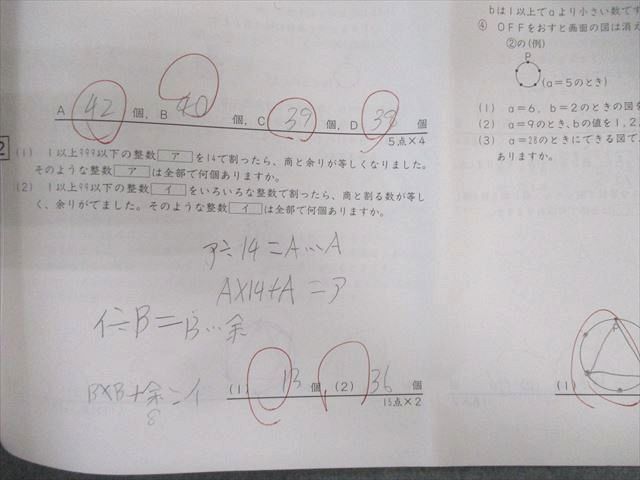 A 42 個, B 40 個, C 39 個, D 38 個
5点×4
2
(1) 1以上999以下の整数 ア を14で割ったら、商と余りが等しくなりました。
そのような整数 ア は全部で何個ありますか。
(2) 1以上99以下の整数 イ をいろいろな整数で割ったら、商と割る数が等し
く、余りがでました。そのような整数 イ は全部で何個ありますか。
ア÷14=A…A
A×14+A=ア
イ÷B=B…余
B×B+余=イ
8
(1) 13 個, (2) 36 個
15点×2
bは1以上でaより小さい数です
④ OFFをおすと画面の図は消え
②の(例)
P
(a=5のとき)
(1) a=6、b=2のときの図を
(2) a=9のとき、bの値を1,2,
(3) a=28のときにできる図で、
ありますか。
(1)